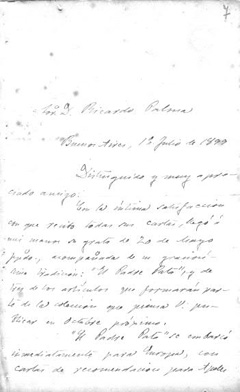 7
Sor. D. Ricardo Palma
Buenos Aires, 1º Julio de 1899
Distinguido y muy apre-
ciado amigo:
Con la íntima satisfacción
con que recibo todas sus cartas, llegó á
mis manos su grata de 20 de Mayo
ppdo, acompañada de su graciosí-
sima tradición: "El Padre Pata"; y de
los artículos que formarán par-
te de la edición que piensa U. pu-
blicar en Octubre próximo.
"El Padre Pata" se embarcó
inmediatamente para Europa, con
cartas de recomendación para